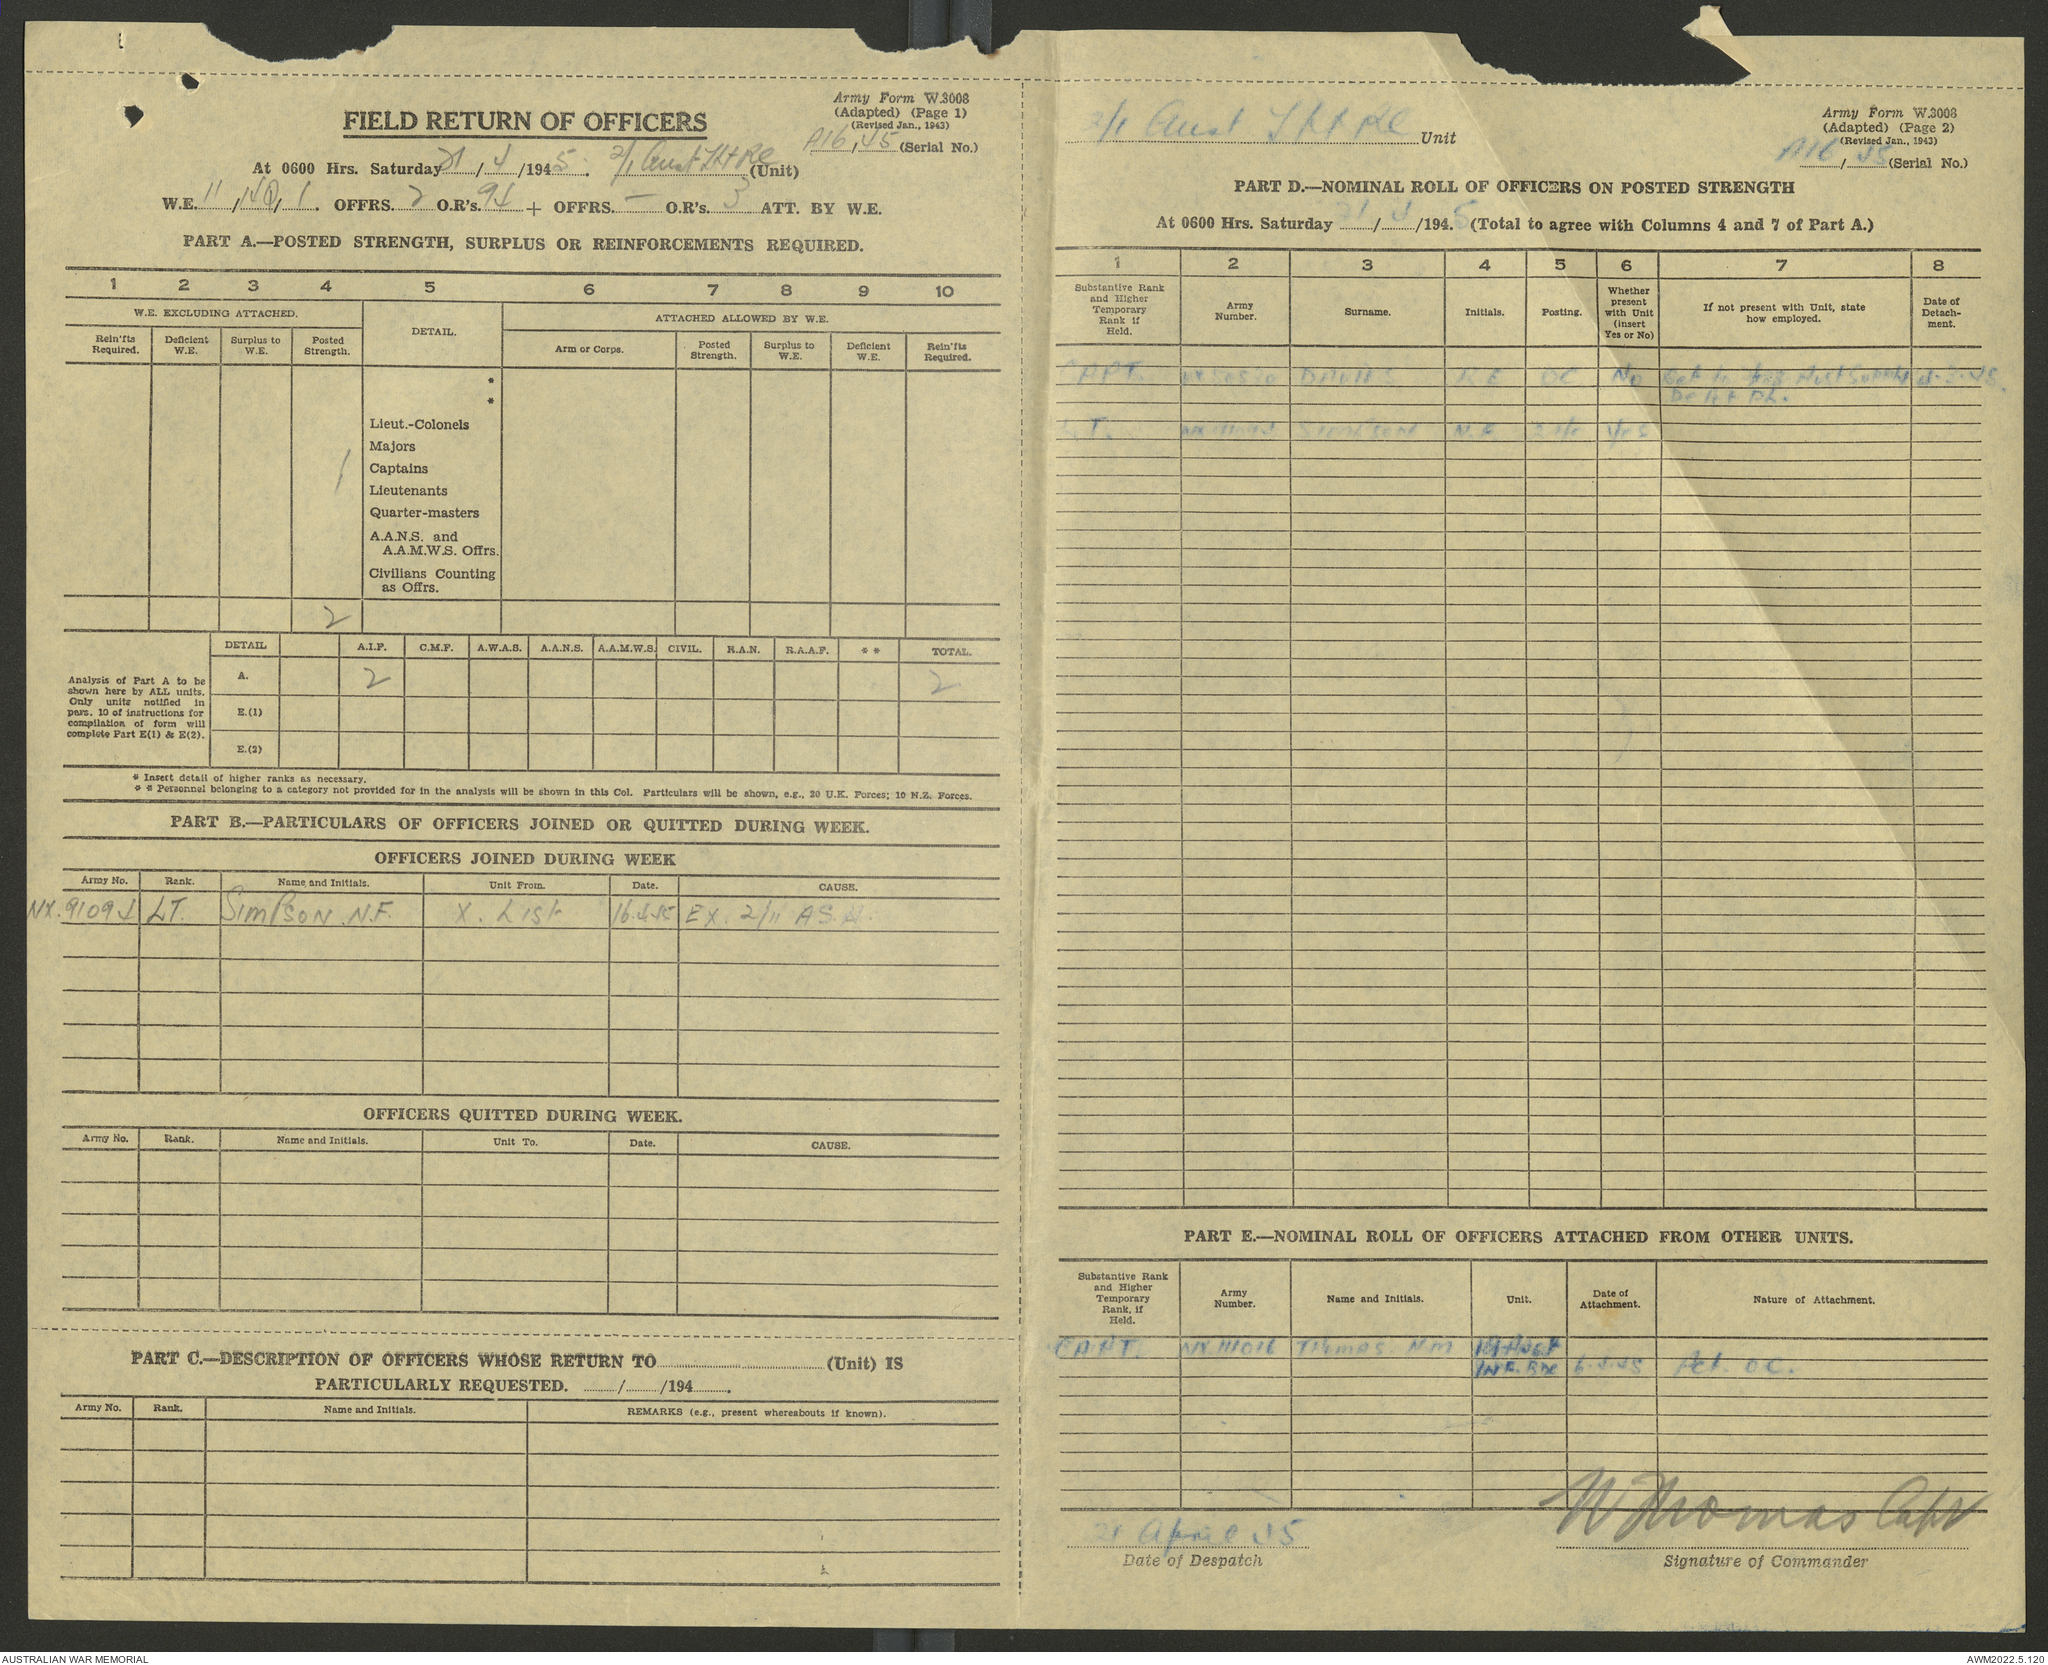 Army Form W.3008
(Adapted) (Page 1)
(Revised Jan., 1943)
FIELD RETURN OF OFFICERS
A16, 45 (Serial No.)
At 0600 Hrs. Saturday 21/4/1945. 2/1 Aust (Unit)
W.E. 11, 140, 1. OFFRS. 2 O.R's. 94 + OFFRS. — O.R's. 3 ATT. BY W.E.
PART A.—POSTED STRENGTH, SURPLUS OR REINFORCEMENTS REQUIRED.
1 2 3 4 5 6 7 8 9 10
W.E. EXCLUDING ATTACHED. DETAIL. ATTACHED ALLOWED BY W.E.
Rein'fts Required. Deficient W.E. Surplus to W.E. Posted Strength. Arm or Corps. Posted Strength. Surplus to W.E. Deficient W.E. Rein'fts Required.
*
*
Lieut.-Colonels
Majors
1 Captains
1 Lieutenants
Quarter-masters
A.A.N.S. and
A.A.M.W.S. Offrs.
Civilians Counting
as Offrs.
2
DETAIL A.I.F. C.M.F. A.W.A.S. A.A.N.S. A.A.M.W.S. CIVIL. R.A.N. R.A.A.F. * * TOTAL.
Analysis of Part A to be
shown here by ALL units.
Only units notified in
para. 10 of instructions for
compilation of form will
complete Part E(1) & E(2).
A. 2 2
E.(1)
E.(2)
* Insert detail of higher ranks as necessary.
* * Personnel belonging to a category not provided for in the analysis will be shown in this Col. Particulars will be shown, e.g., 20 U.K. Forces; 10 N.Z. Forces.
PART B.—PARTICULARS OF OFFICERS JOINED OR QUITTED DURING WEEK.
OFFICERS JOINED DURING WEEK
Army No. Rank. Name and Initials. Unit From. Date. CAUSE.
NX.91094 LT. SIMPSON. N.F. X. List 16.4.45 EX. 2/11 A.S.H.
OFFICERS QUITTED DURING WEEK.
Army No. Rank. Name and Initials. Unit To. Date. CAUSE.
PART C.—DESCRIPTION OF OFFICERS WHOSE RETURN TO (Unit) IS
PARTICULARLY REQUESTED. / /194 .
Army No. Rank. Name and Initials. REMARKS (e.g., present whereabouts if known).
2/1 Aust Unit
Army Form W.3008
(Adapted) (Page 2)
(Revised Jan., 1943)
A16/45 (Serial No.)
PART D.—NOMINAL ROLL OF OFFICERS ON POSTED STRENGTH
At 0600 Hrs. Saturday 21/4/1945 (Total to agree with Columns 4 and 7 of Part A.)
1 2 3 4 5 6 7 8
Substantive Rank and Higher Temporary Rank if Held. Army Number. Surname. Initials. Posting. Whether present with Unit (insert Yes or No) If not present with Unit, state how employed. Date of Detachment.
CAPT. OC. No
LT. SIMPSON N.F. Yes
PART E.—NOMINAL ROLL OF OFFICERS ATTACHED FROM OTHER UNITS.
Substantive Rank and Higher Temporary Rank, if Held. Army Number. Name and Initials. Unit. Date of Attachment. Nature of Attachment.
CAPT. NX.111016 THOMAS. N.M
6.4.45 Act. OC.
21 April 45
Date of Despatch
N Thomas Capt
Signature of Commander
AUSTRALIAN WAR MEMORIAL
AWM2022.5.120